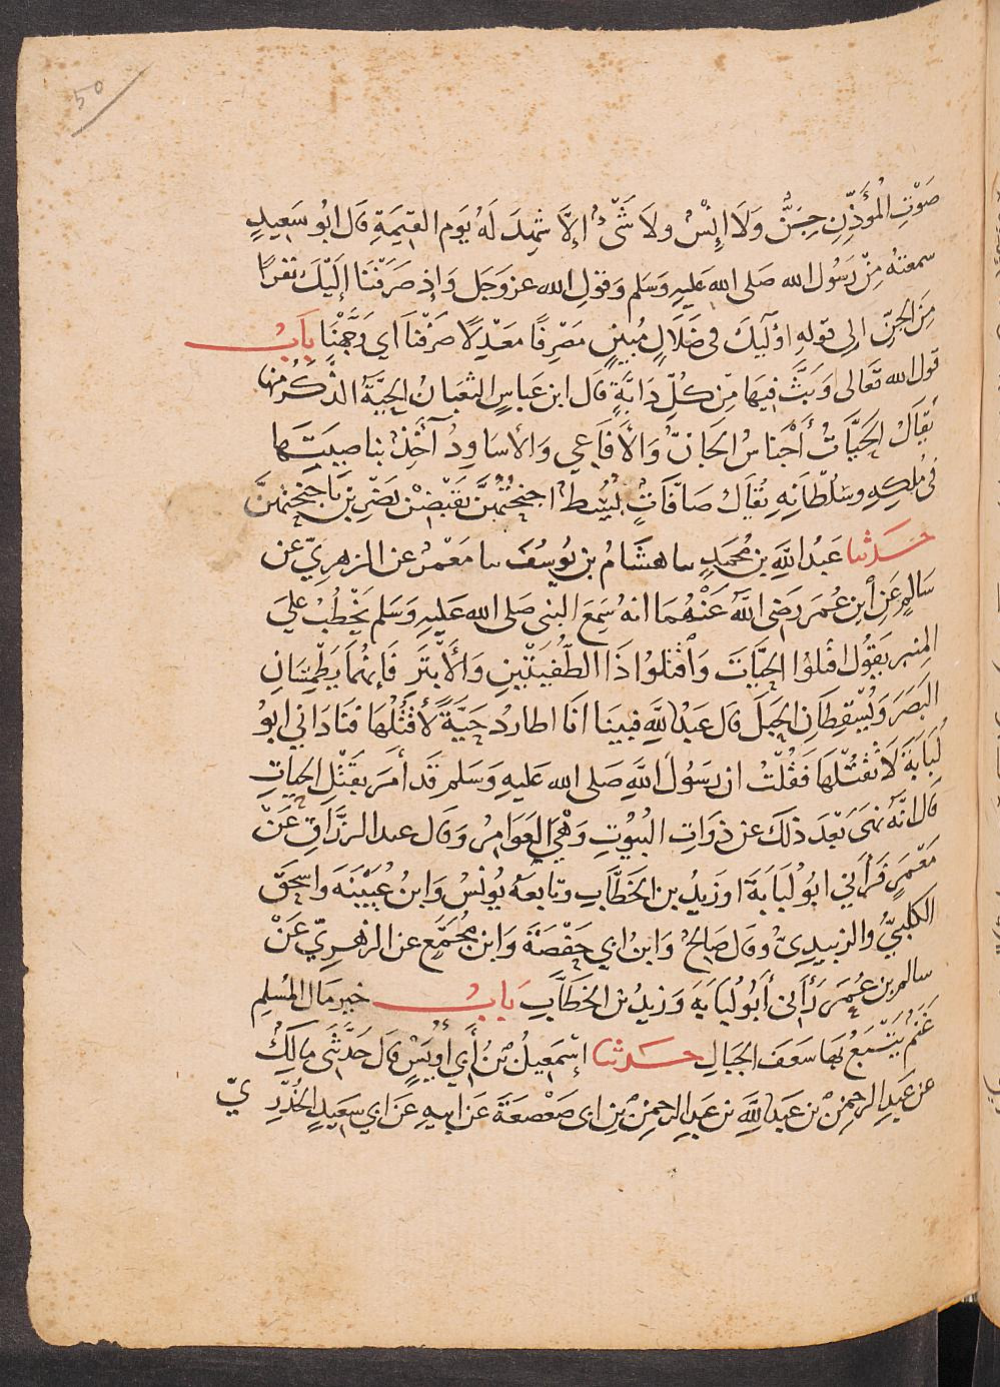 50
صَوْتِ الْمُؤَذِّنِ جِنٌّ وَلَا اِنْسٌ ولا شَىْءٌ اِلَّا شَهِدَ لَهُ يَوم القِيَمَةِ قَال ابُو سَعِيدٍ
سمعتهُ مِنْ رَسُول الله صَلى الله عَليهِ وَسَلم وَقولِ الله عز وَجَل وَاِذ صَرَفْنَا اِلَيْكَ نَفَرًا
مِنَ الْجِنِّ الى قولهِ اوْلَئِكَ فى ضَلَالٍ مُبينٍ مَصْرِفًا مَعْدِلًا صَرَفْنَا اي وَجَّهْنَا بَابُ
قول الله تعَالى وَبَثَّ فِيهَا مِنْ كُلِّ دَابَّةٍ قَال ابن عَباسٍ الثعبَانُ الْحَيَّةُ الذَّكَرُ منها
يُقَالُ الْحَيَّاتُ أَجْنَاسٌ الْجَانُّ وَالْأَفَاعِي وَالأسَاوِدُ آخِذٌ بناصِيَتِهَا
فى مُلكِهِ وسُلْطَانِهِ يُقَالُ صَافَّاتٍ بُسُطٌ اجنحتُهُنَّ يَقْبِضْنَ يَضْرِبنَ بِاَجنحتهِنَّ
حَدثنا عَبدُ اللهِ بن مُحمَدٍ سا هشَامُ بن يُوسُفَ سا مَعْمَرٌ عن الزهرِيّ عن
سَالِمٍ عَنِ ابْنِ عُمَرَ رَضى اللهُ عَنْهُمَا انهُ سَمِعَ النبى صَلى الله عَليهِ وَسَلم يَخْطُبُ علَى
المِنبر يَقُول اقتُلوُا الحَيَّاتَ وَاقْتلوُا ذَا الطُّفْيَتَيْنِ وَالأَبْتَرَ فَاِنهُمَا يَطْمِسَانِ
البَصَرَ وَيَسْتَسقِطَانِ الحَبَلَ قَال عَبدُ اللهِ فبينَا اَنَا اطارِدُ حَيَّةً لأَقْتُلَهَا فنَادَاني ابوُ
لُبَابَةَ لَا تَقْتُلْهَا فَقُلْتُ ان رَسُولَ اللهِ صَلى الله عَليهِ وَسَلم قَد أَمَرَ بِقَتْلِ الحيَاتِ
قال اِنَّهُ نهَى بَعْدَ ذلكَ عن ذَوَاتِ البُيُوْتِ وَهْيَ العَوَامِرُ وَقال عبد الرزَّاقِ عَنْ
مَعْمَرٍ فَرآني ابوُ لُبَابَةَ اوَ زَيدُ بن الخَطَّابِ وتابعَهُ يُونسُ وَابنُ عُيَيْنَةَ واسحَقُ
الكلبيُّ والزبيدِىُّ وقال صَالحٌ وَابنُ ابي حَفْصَةَ وَابن مُجَمِّعٍ عن الزهرِيّ عَنْ
سالم بن عُمَرَ رَآنى أَبُو لُبَابَةَ وَزيدُ بن الخطَّابِ بَابُ خير مَال المُسلِمِ
غَنَمٌ يَتْبَعُ بهَا سَعَفَ الجبَالِ حَدثنا اِسْمَعِيلُ بْنُ أَبي اوَيْسٍ قال حَدَّثَنى مالِكٌ
عن عَبدِ الرحمن بن عَبد اللهِ بن عَبدِ الرحمن بن ابى صَعْصَعَةَ عَن ابيهِ عَن ابي سَعِيدٍ الخُدْرِيّ